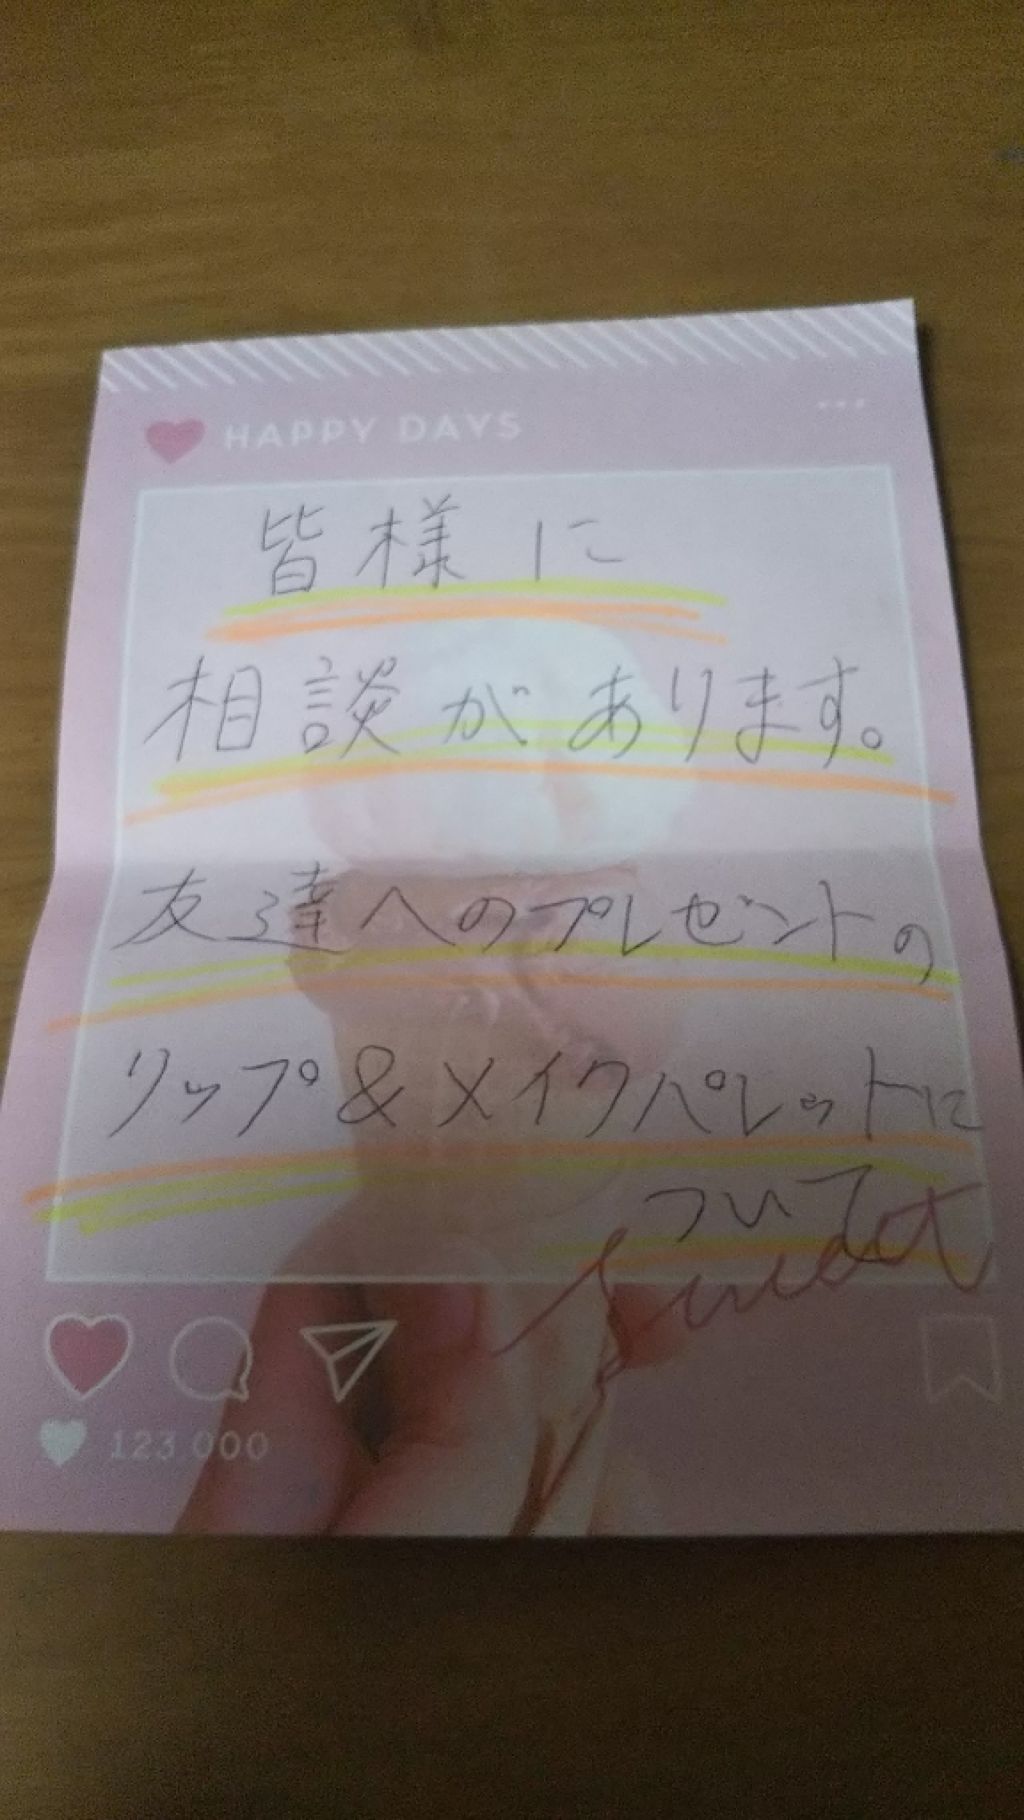 HAPPY DAYS
皆様に
相談があります。
友達へのプレゼントの
リップ&メイクパレットに
ついて
Sweet
123.000